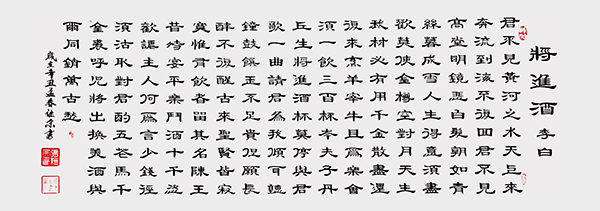 將進酒 李白
君不見黃河之水天上來
奔流到海不復回君不見
高堂明鏡悲白髮朝如青
絲暮成雪人生得意須盡
歡莫使金樽空對月天生
我材必有用千金散盡還
復來烹羊宰牛且爲樂會
須一飲三百杯岑夫子丹
丘生將進酒杯莫停與君
歌一曲請君爲我傾耳聽
鐘鼓饌玉不足貴但願長
醉不復醒古來聖賢皆寂
寞惟有飲者留其名陳王
昔時宴平樂鬥酒十千恣
歡謔主人何爲言少錢徑
須沽取對君酌五花馬千
金裘呼兒將出換美酒與
爾同銷萬古愁
歲在辛丑孟春書